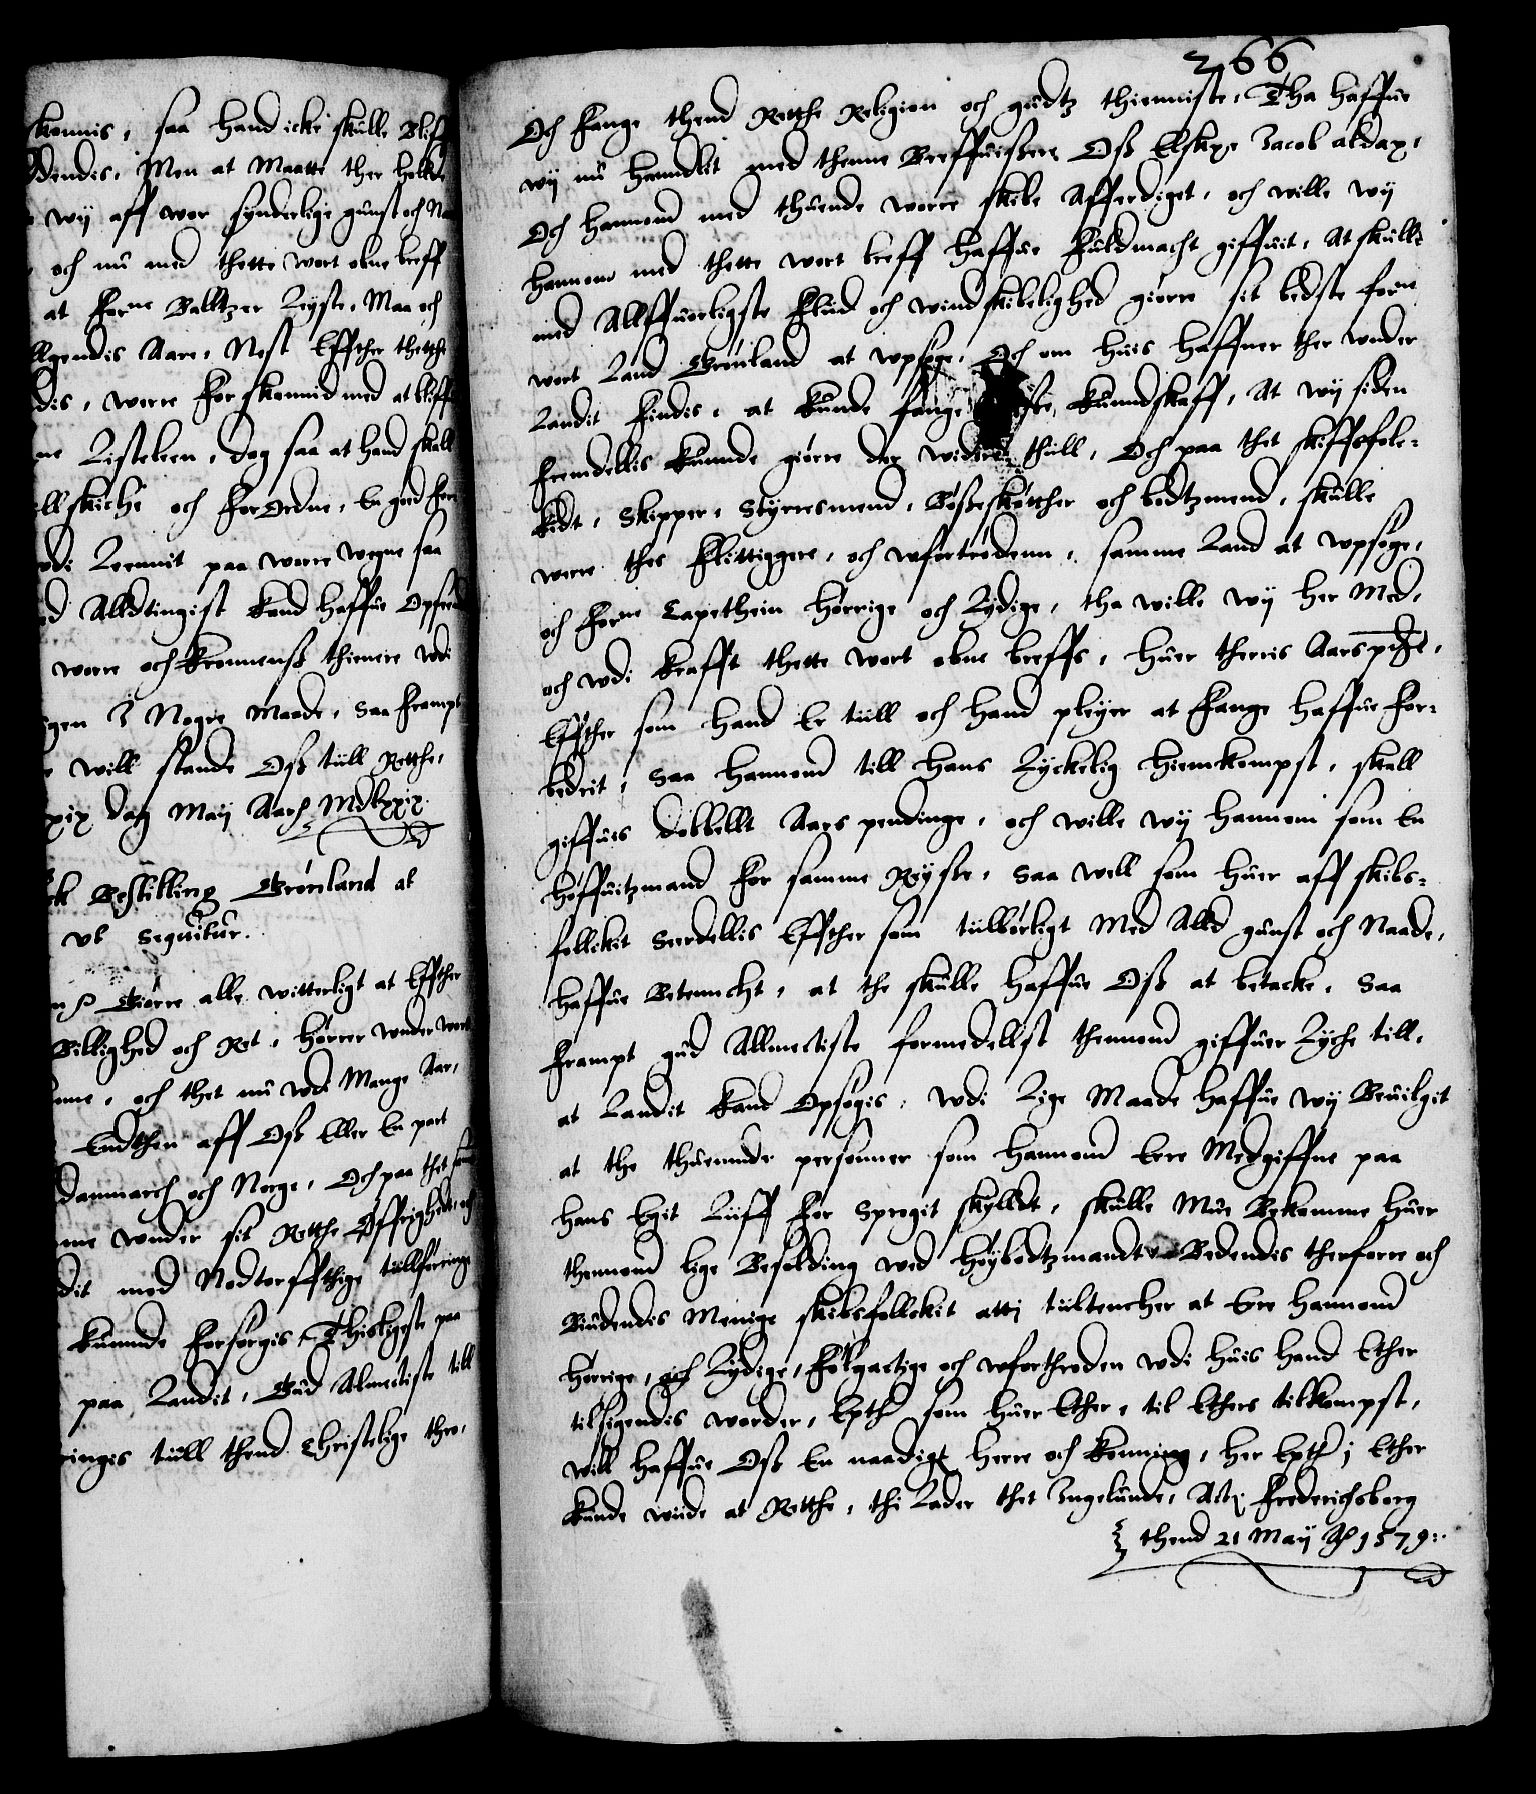 skonnis, saa hand icke skulle Blif
dendis, Men at Maatte ther holde
wy aff wor synderlige gunst och Na
och nu med thette wort obne breff
at forne Balltzer Leyste, Maa och
llgendis Aare, Nest Effther thette
dis, werre forskonnid med at bliff
ne Listeleen, dog saa at hand skall
ell skicke och forordne, En god for
wdi Leennit paa worre wegne saa
d Alldtingist kand haffue Opseen
worre och Kronnens thienere wdi
gen I Nogre Maade, saa frampt
will stande Oss till Rette,
xix dag Maij Aars Mdlxxix
ck Bestilling Grønland at
vt sequitur.
Giørre alle witterligt at Effther
Billighed och Ret, hørrer wnder wort
nne, och thet nu wdi Mange Aar,
Endthen aff Oss Eller En part
danmarch och Norge, Och paa thet samme
me wnder sit Retthe Øffrighedt, och
dit med Nodtorfftige tillføringe
kunde forsørgis, Thisligeste paa
paa Landit, Gud Almectiste till
inges till thend Christelige thro,
266
Och fange thend Retthe Religion och gudtz thienniste, Tha haffue
wy nu handlit med thenne Breffuisere Oss Elskxe Jacob aldax,
Och hannom med thuende worre skibe Afferdiget, och wille wy
hannom med thette wort breff haffue fuldmacht giffuit, At skulle
med Allffuorligste flid och windskibelighed giørre sit bedste form
wort Land Grønland at wpsøge, Och om huis haffner ther wnder
Landit findis, at kunde fange wisse kundskaff, At wy siden
fremdellis kunde giørre der widere thill, Och paa thet skiffsfolc-
kit, Skipper, Styrresmend, Bøsseskøtther och bodtzmend, skulle
werre thes flittiggere, och wfortrødenn, samme Land at wpsøge,
och forne Capethein hørrige och Lydige, tha wille wy her Med,
och wdi krafft thette wort obne breffs, huer therris Aarspenge,
Effther som hand Er till och hand pleyer at fange haffue for-
bedrit, Saa hannom till hans Lyckelig hiemkompst, skall
giffuis dobbellt Aars pendinge, och wille wy hannom som En
høffuitzmand for samme Reyse, Saa well som huer aff skibs-
follckit serdellis Effther som tilbørligt Med Alld gunst och Naade,
haffue Betenncht, at the skulle haffue Oss at betacke, Saa
frampt gud Allmectiste formedellst thennom giffuer Lycke till,
at Landit kand Opsøgis, Wdi Lige Maade haffue wy Beuilgit
at the thuennde personner som hannom Ere Medgiffne paa
hans Egit Liiff for Sprogit skylldt, skulle Mue Bekomme huer
thennom lige Besolding wed høybodtzmandt Bedendis therforre och
Biudendis Menige skibsfollckit atti tiltencker at Ere hannom
hørrige, och Lydige, følgactige och wforthroden wdi huis hand Ether
tilsigendis worder, Epth som huer Ether, til Ethers tilkompst,
will haffue Oss En naadigt herre och konning, her Epth i Ether
kunde wiide at Rette, thi Lader thet Ingelunde, Actj frederichsborg
thend 21 Maij Ao 1579:.